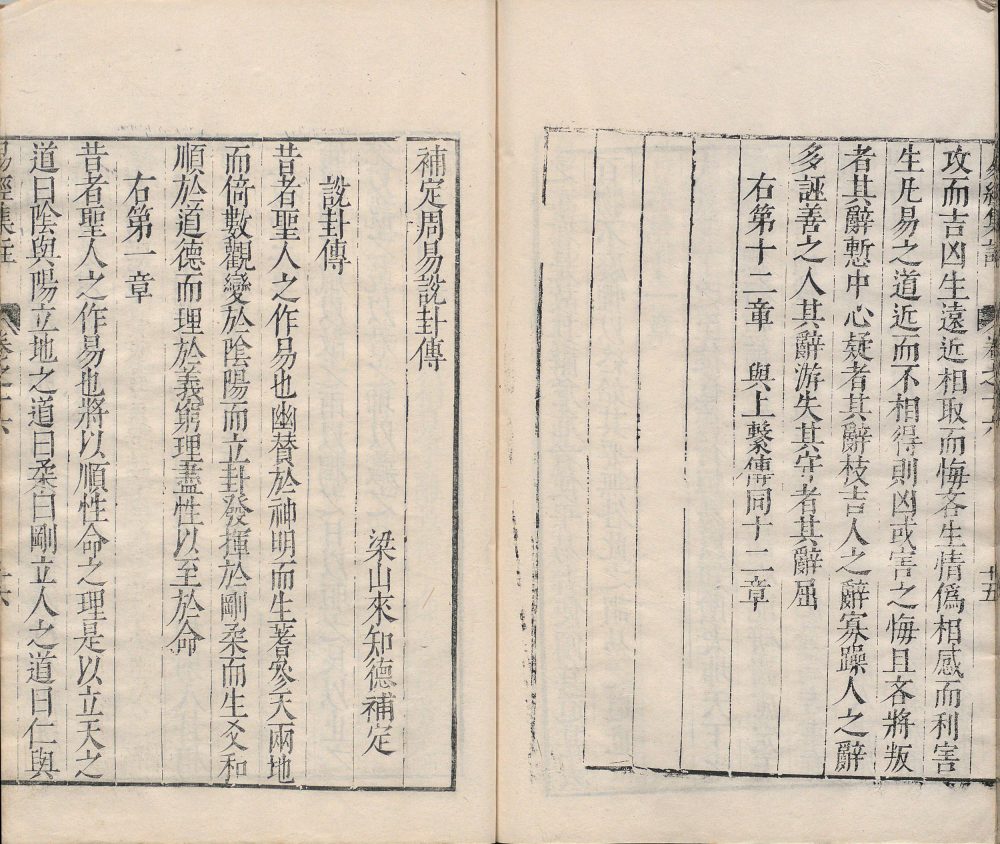 易經集註　卷之十六　十五
攻而吉凶生遠近相取而悔吝生情僞相感而利害
生凡易之道近而不相得則凶或害之悔且吝將叛
者其辭慙中心疑者其辭枝吉人之辭寡躁人之辭
多誣善之人其辭游失其守者其辭屈
右第十二章　與上繫傳同十二章
補定周易說卦傳
梁山來知德補定
說卦傳
昔者聖人之作易也幽贊於神明而生蓍參天兩地
而倚數觀變於陰陽而立卦發揮於剛柔而生爻和
順於道德而理於義窮理盡性以至於命
右第一章
昔者聖人之作易也將以順性命之理是以立天之
道曰陰與陽立地之道曰柔曰剛立人之道曰仁與
易經集註　卷之十六　十六